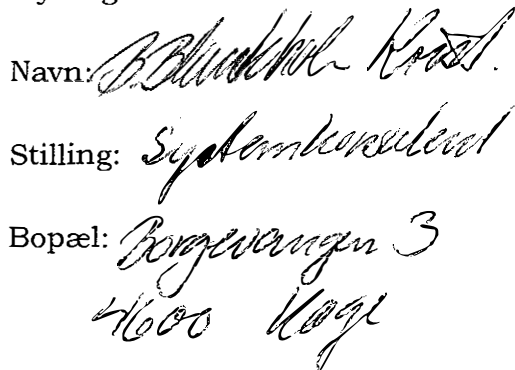 Navn: B. Blankholm
Stilling: Systemkonsulent
Bopæl: Borgevangen 3
4600 Køge